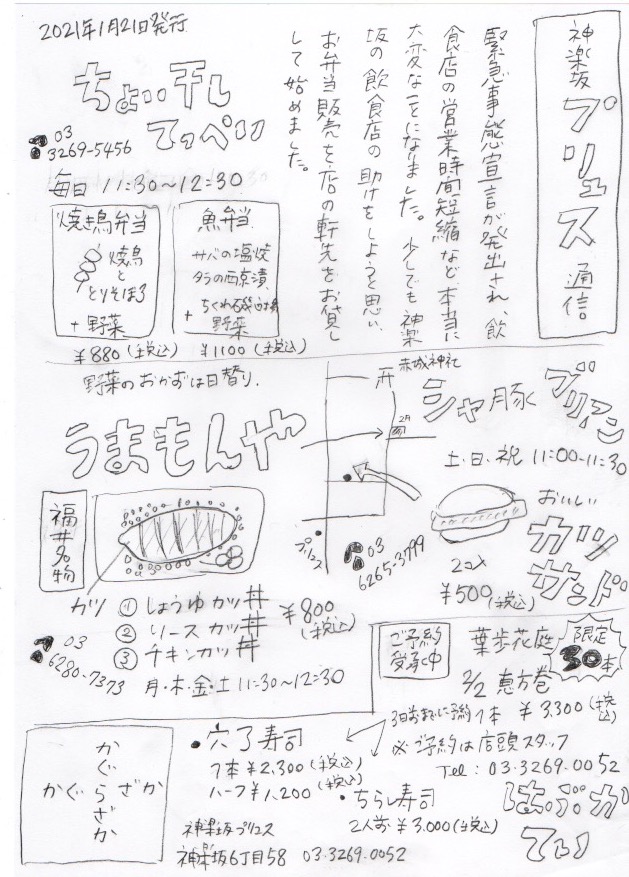 神楽坂 プリュス 通信
2021年1月21日発行
緊急事態宣言が発出され、飲
食店の営業時間短縮など本当に
大変なことになりました。少しでも神楽
坂の飲食店の助けをしようと思い、
お弁当販売を店の軒先をお貸し
して始めました。
ちょい干し
てっぺい
03
3269-5456
毎日 11:30〜12:30
焼き鳥弁当
焼鳥
と
とりそぼろ
+野菜
¥880(税込)
魚弁当
サバの塩焼
タラの西京漬
ちくわ磯辺揚
+
野菜
¥1100(税込)
野菜のおかずは日替り.
うまもんや
福井名物
カツ
① しょうゆカツ丼
② ソースカツ丼
③ チキンカツ丼
¥800
(税込)
03
6280-7373
月・木・金・土 11:30〜12:30
赤城神社
プリュス
シャ豚 ブリアン
土・日・祝 11:00-11:30
おいしい
カツ
サンド
2コ入
¥500(税込)
03
6265-3799
ご予約
受承中
葉歩花庭
限定
30本
2/2 恵方巻
3日前までに予約
1本 ¥3,300(税込)
※ご予約は店頭スタッフ
Tel:03.3269.0052
はぶか
てい
かぐらざか
かぐらざか
・穴子寿司
1本¥2,300(税込)
ハーフ¥1,200(税込)
・ちらし寿司
2人前¥3.000(税込)
神楽坂プリュス
神楽坂6丁目58 03.3269.0052